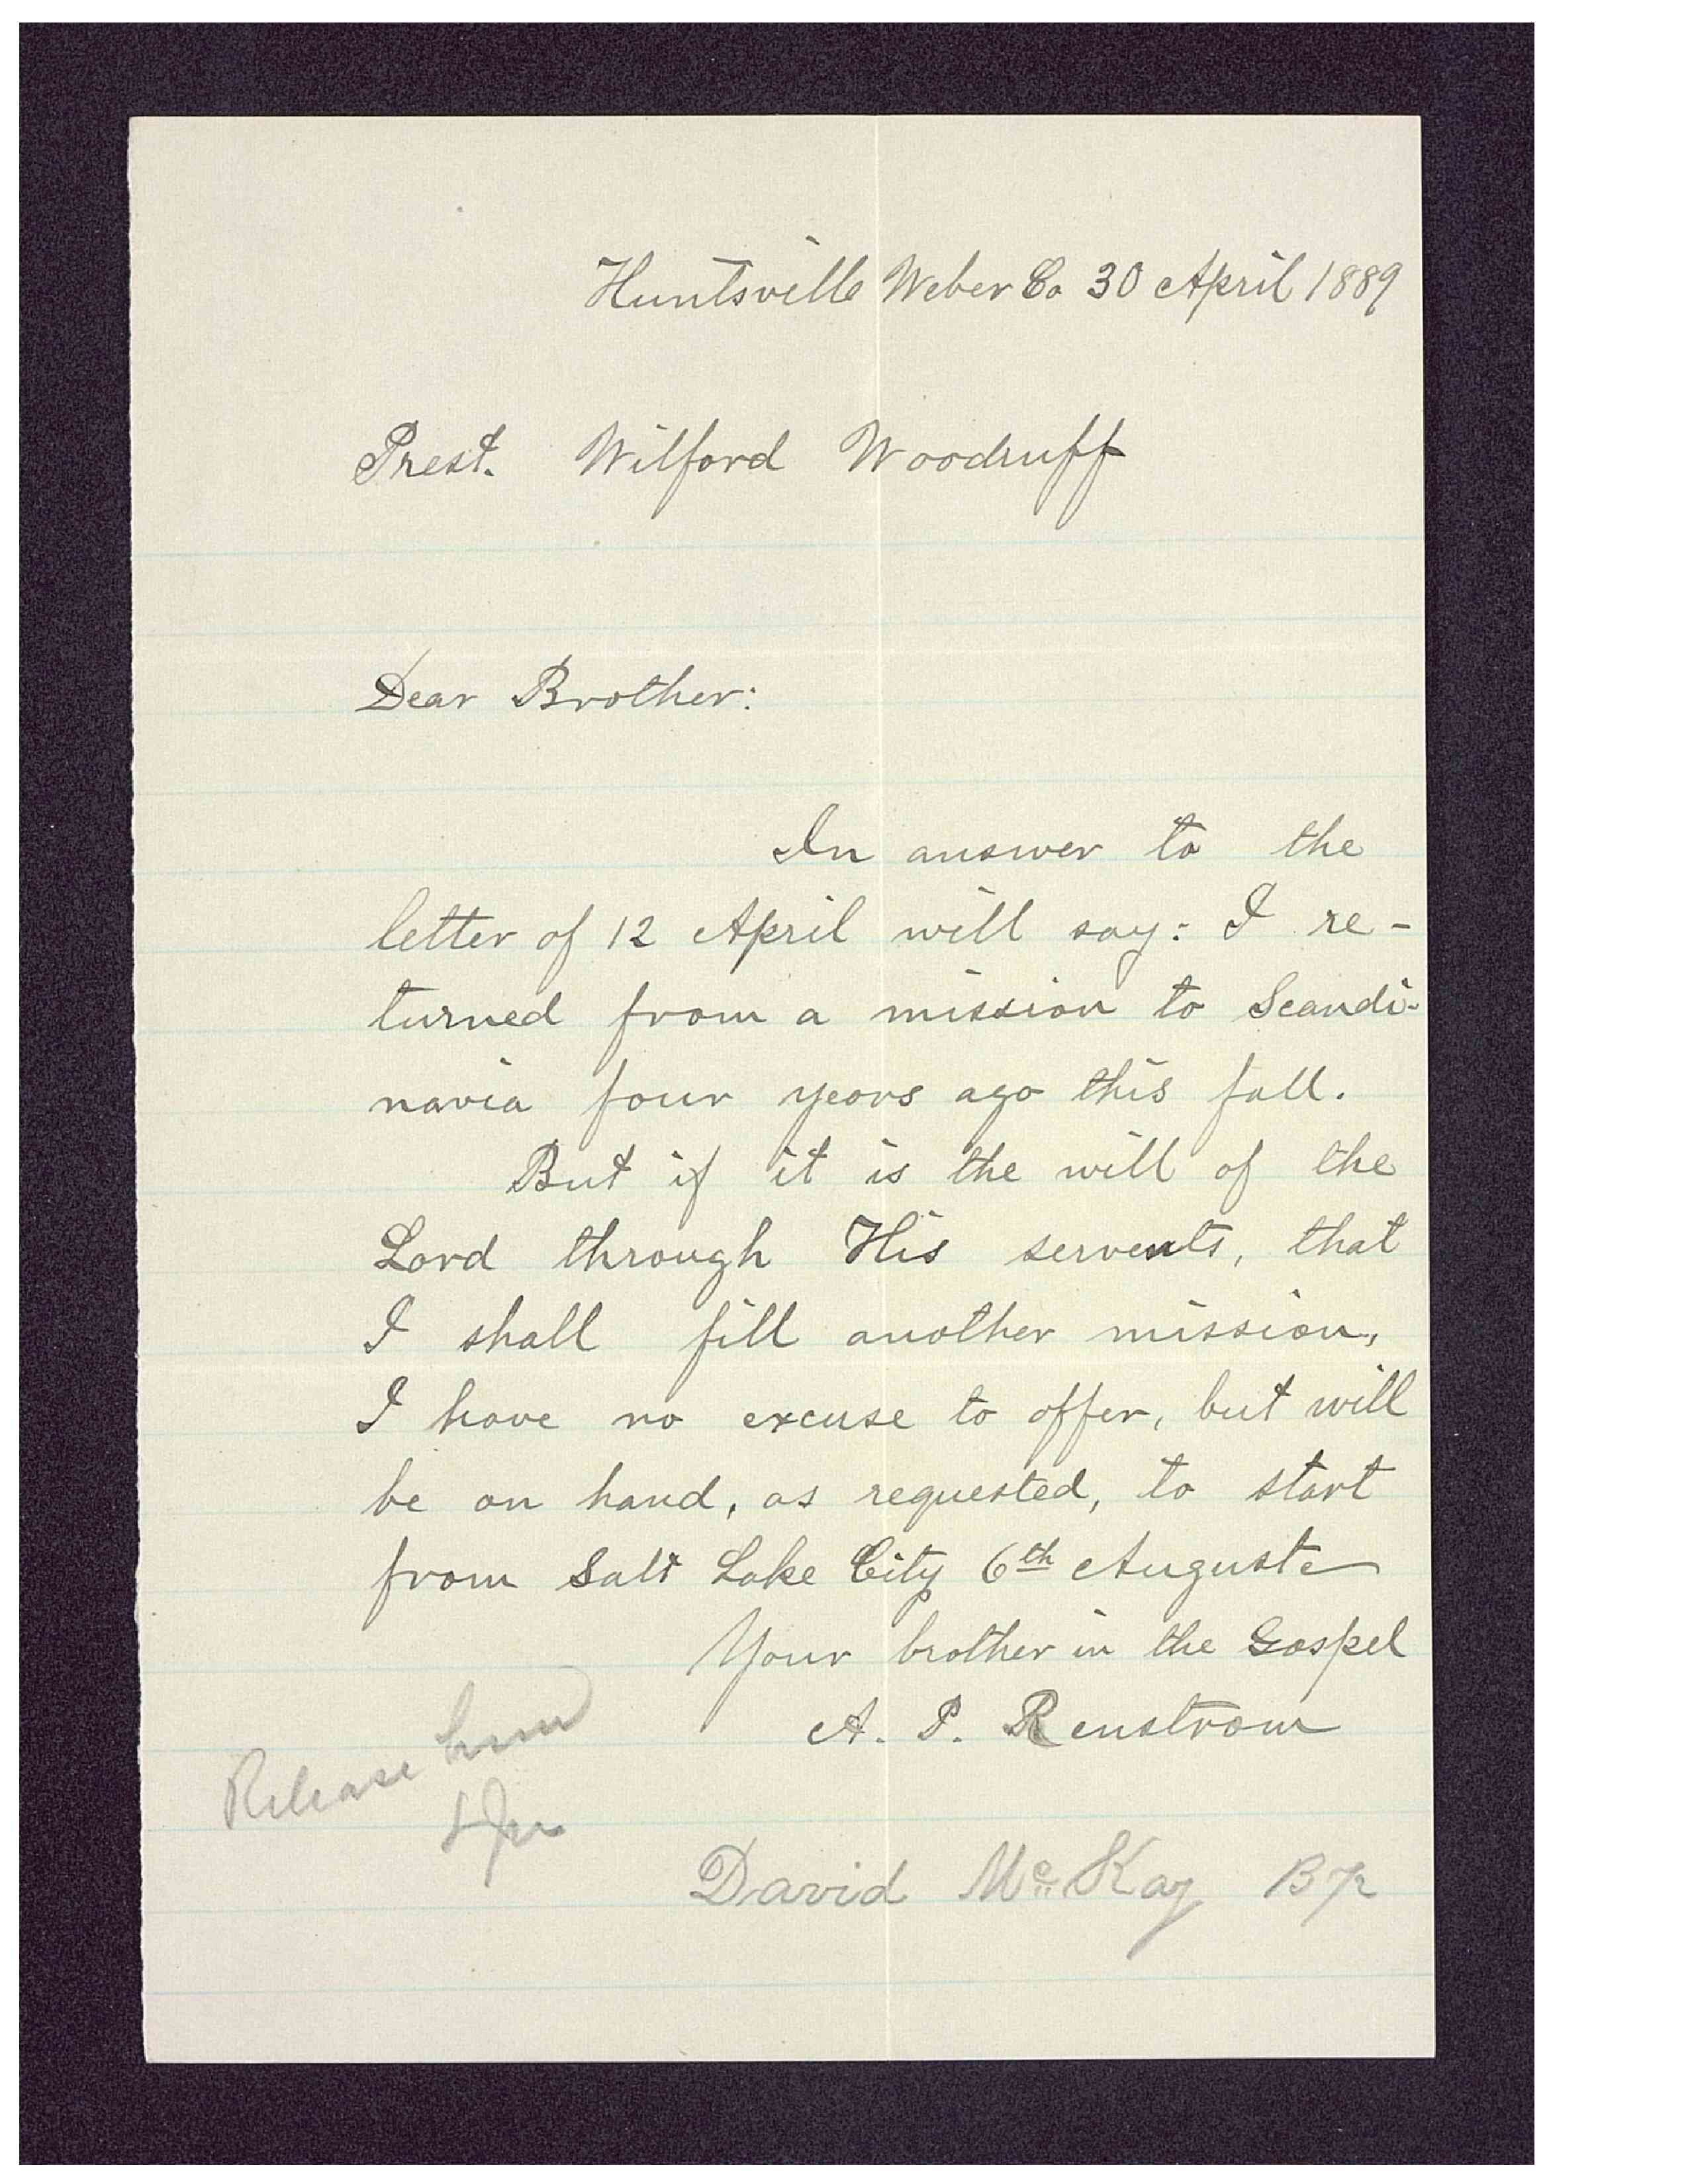 Huntsville Weber Co 30 April 1889
Prest. Wilford Woodruff
Dear Brother:
In answer to the
letter of 12 April will say: I re-
turned from a mission to Scandi-
navia four years ago this fall.
But if it is the will of the
Lord through His servents, that
I shall fill another mission,
I have no excuse to offer, but will
be on hand, as requested, to start
from Salt Lake City 6th Auguste
Your brother in the Gospel
A. P. Renstrom
Release him
David McKay Bp